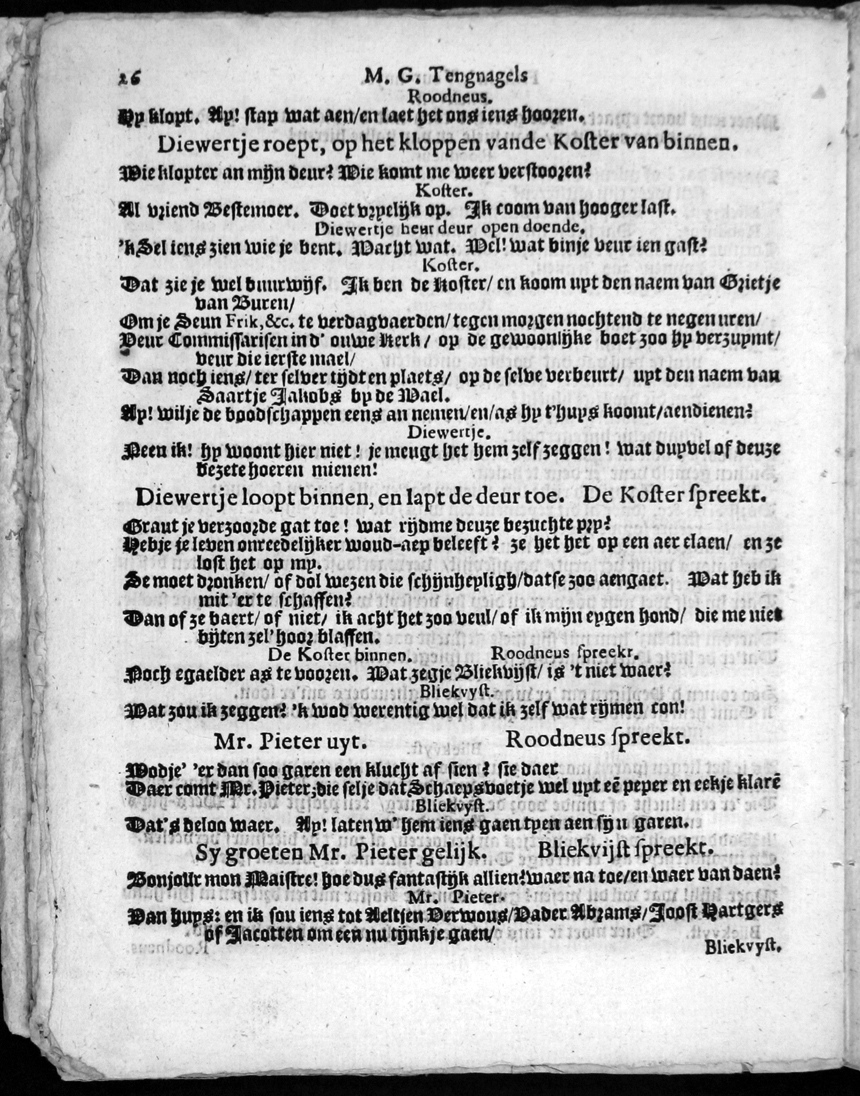 26 M. G. Tengnagels
Roodneus.
Hy klopt. Ay! stap wat aen/en laet het ons iens hooren.
Diewertje roept, op het kloppen vande Koster van binnen.
Wie klopter an mijn deur? Wie komt me weer verstooren?
Koster.
Al vriend Bestemoer. Doet vrpelijk op. Ik coom van hooger last.
Diewertje heur deur open doende.
'k Sel iens zien wie je bent. Wacht wat. Wel! wat binje veur ien gast?
Koster.
Dat zie je wel buurwijf. Ik ben de Koster/ en koom uyt den naem van Grietje
van Buren/
Om je Seun Frik, &c. te verdagvaerden/ tegen morgen nochtend te negen uren/
Veur Commissarisen in d' ouwe Kerk/ op de gewoonlijke boet zoo hy verzuymt/
veur die ierste mael/
Dan noch iens/ ter selver tijdt en plaets/ op de selve verbeurt/ uyt den naem van
Saartje Jakobs by de Wael.
Ay! wil je de boodschappen eens an nemen/en/as hy t'huys koomt/aendienen?
Diewertje.
Neen ik! hy woont hier niet! je meugt het hem zelf zeggen! wat duyvel of deuze
bezete hoeren mienen!
Diewertje loopt binnen, en lapt de deur toe. De Koster spreekt.
Graut je verzoorde gat toe! wat rijdme deuze bezuchte pry?
Hebje je leven onreedelijker woud-aep beleeft? ze het het op een aer elaen/ en ze
lost het op my.
Se moet dronken/ of dol wezen die schijnheyligh/datse zoo aengaet. Wat heb ik
mit 'er te schaffen?
Dan of ze baert/ of niet/ ik acht het zoo veul/ of ik mijn eygen hond/ die me niet
bijten zel' hoor blaffen.
De Koster binnen. Roodneus spreekt.
Noch egaelder as te vooren. Wat zegje Bliekvijst/ is 't niet waer?
Bliekvyst.
Wat zou ik zeggen? 'k wod werentig wel dat ik zelf wat rijmen con!
Mr. Pieter uyt. Roodneus spreekt.
Wodje' 'er dan soo garen een klucht af sien? sie daer
Daer comt Mr. Pieter; die selje dat Schaepsvoetje wel uyt eē peper en eekje klarē
Bliekvyst.
Dat's deloo waer. Ay! laten w' hem iens gaen tyen aen sijn garen.
Sy groeten Mr. Pieter gelijk. Bliekvijst spreekt.
Bonjour mon Maistre! hoe dus fantastijk allien? waer na toe/en waer van daen?
Mr. Pieter.
Van huys: en ik sou iens tot Aeltjen Verwous/Vader Abrams/Joost Hartgers
of Jacotten om een nu tijnkje gaen/
Bliekvyst.